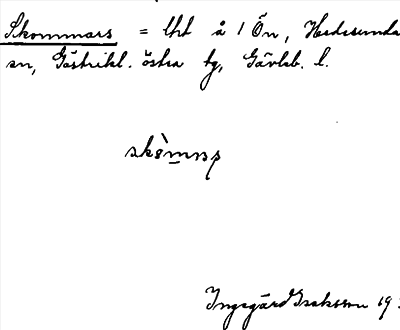 Skommars = lht å 1 Ön, Hedesunda
sn, Gästrikl. östra tg, Gävleb. l.
Ingegärd Isaksson 19